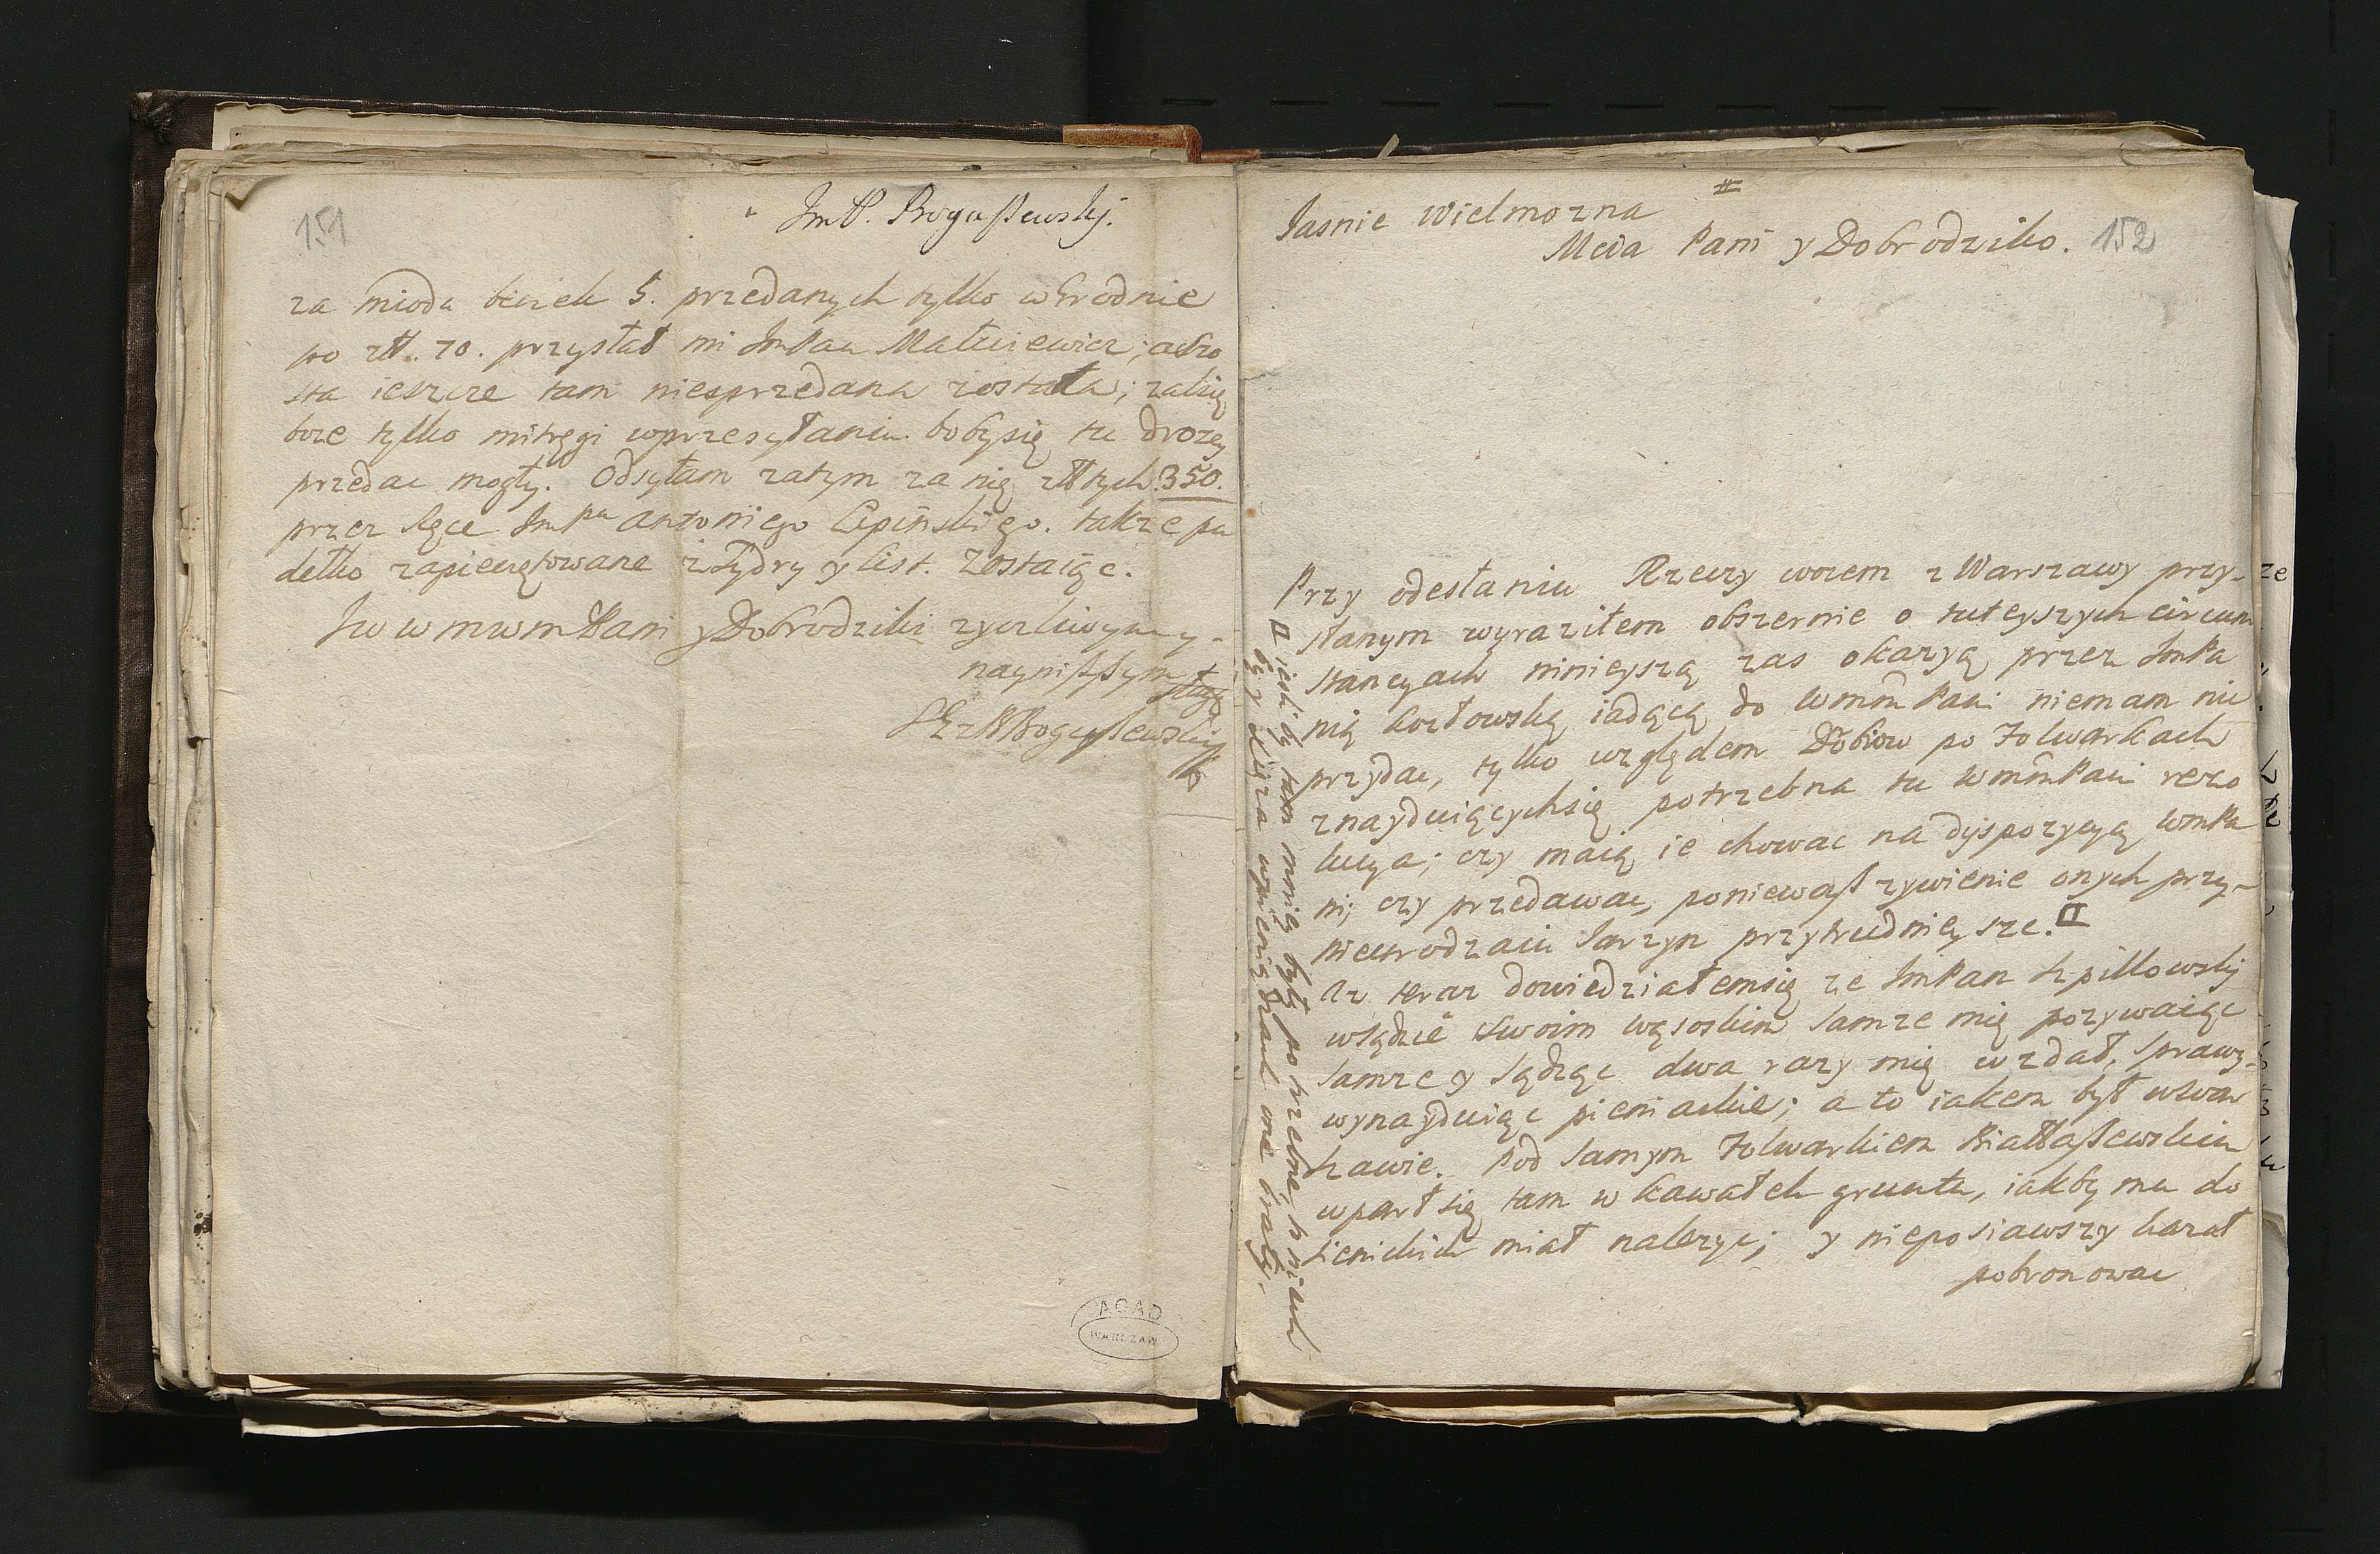 151
JmP. Boguſzewsky.
za miodu beczek 5. przedanych tylko w Grodnie
po złł. 70. przysłał mi JmPan Matusiewicz;
sta ieszcze tam niesprzedana została;
tylko mitręgi wprzesyłaniu bobysię tu drozey
przedac mogły. Odsyłam zatym za nię złłtych 350.
przez Ręce JmPa Antoniego Lipinskiego. takze pu
dełko zapieczętowane y list. Zostaiąc.
JwwmwmPani y Dobrodziki zyczliwym y
nayniſzſzym sługą
Boguſzewsky
ACAD
WARSZAW
Jasnie Wielmozna
Mcia Pani y Dobrodziko.
152
Przy odesłaniu Rzeczy wozem z Warszawy przy-
słanym wyraziłem obszernie o tuteyszych circum
stancyach ninieyszą zas okazyą przez JmPa
nią Kozłowską iadącą do WmmPani niemam nic
przydac, tylko względem Drobiow po Folwarkach
znayduiącychsię potrzebna tu WmmPani rezo
lucya; czy maią ie chowac na dyspozycyą WmPa
ni, czy przedawac, poniewaſz zywienie onych przy-
nieurodzaiu Jarzyn przytrudnieysze. II
Az teraz dowiedziałemsię ze JmPan Szpilkowsky
wsądzie Swoim Wąsoskim Samze mię pozywaiąc
Samze y Sądząc dwa razy mię wzdał, Sprawy-
wynayduiąc pieniackie; a to iakem był wWar
szawie. Pod Samym Folwarkiem Białłaſzewskim
wparł się tam w kawałek gruntu, iakby mu do
Sienickich miał nalezyc; y nieposiawszy kazał
pobronowac
II iesli by tam mniey były potrzebne, h niech
by y Xięza wpienią dzach one brały.